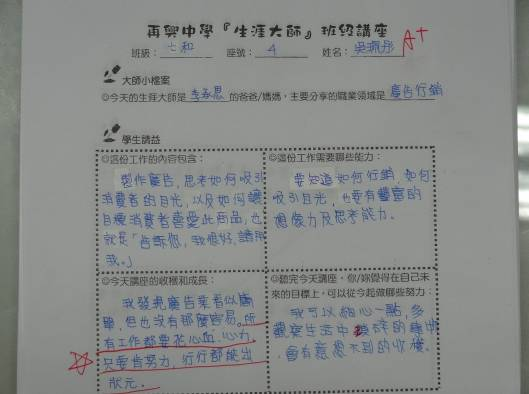 再興中學『生涯大師』班級講座
班級：七和 座號：4 姓名：吳珮彤 A+
大師小檔案
☺今天的生涯大師是 李孟恩 的爸爸/媽媽，主要分享的職業領域是 廣告行銷
學生請益
☺這份工作的內容包含：
製作廣告，思考如何吸引
消費者的目光，以及如何讓
目標消費者喜愛此商品，也
就是「告訴你，我很好，請用
我。」
☺這份工作需要哪些能力：
要知道如何行銷 如何
吸引目光，也要有豐富的
想像力及思考能力。
☺今天講座的收穫和成長：
我發現廣告業看似簡
單，但也沒有那麼容易。所
有工作都要花心血、心力。
只要肯努力，行行都能出
狀元。
☺聽完今天講座，你/妳覺得在自己未
來的目標上，可以從今起做哪些努力：
我可以細心一點，多
觀察生活中瑣碎的事物
，會有意想不到的收穫。